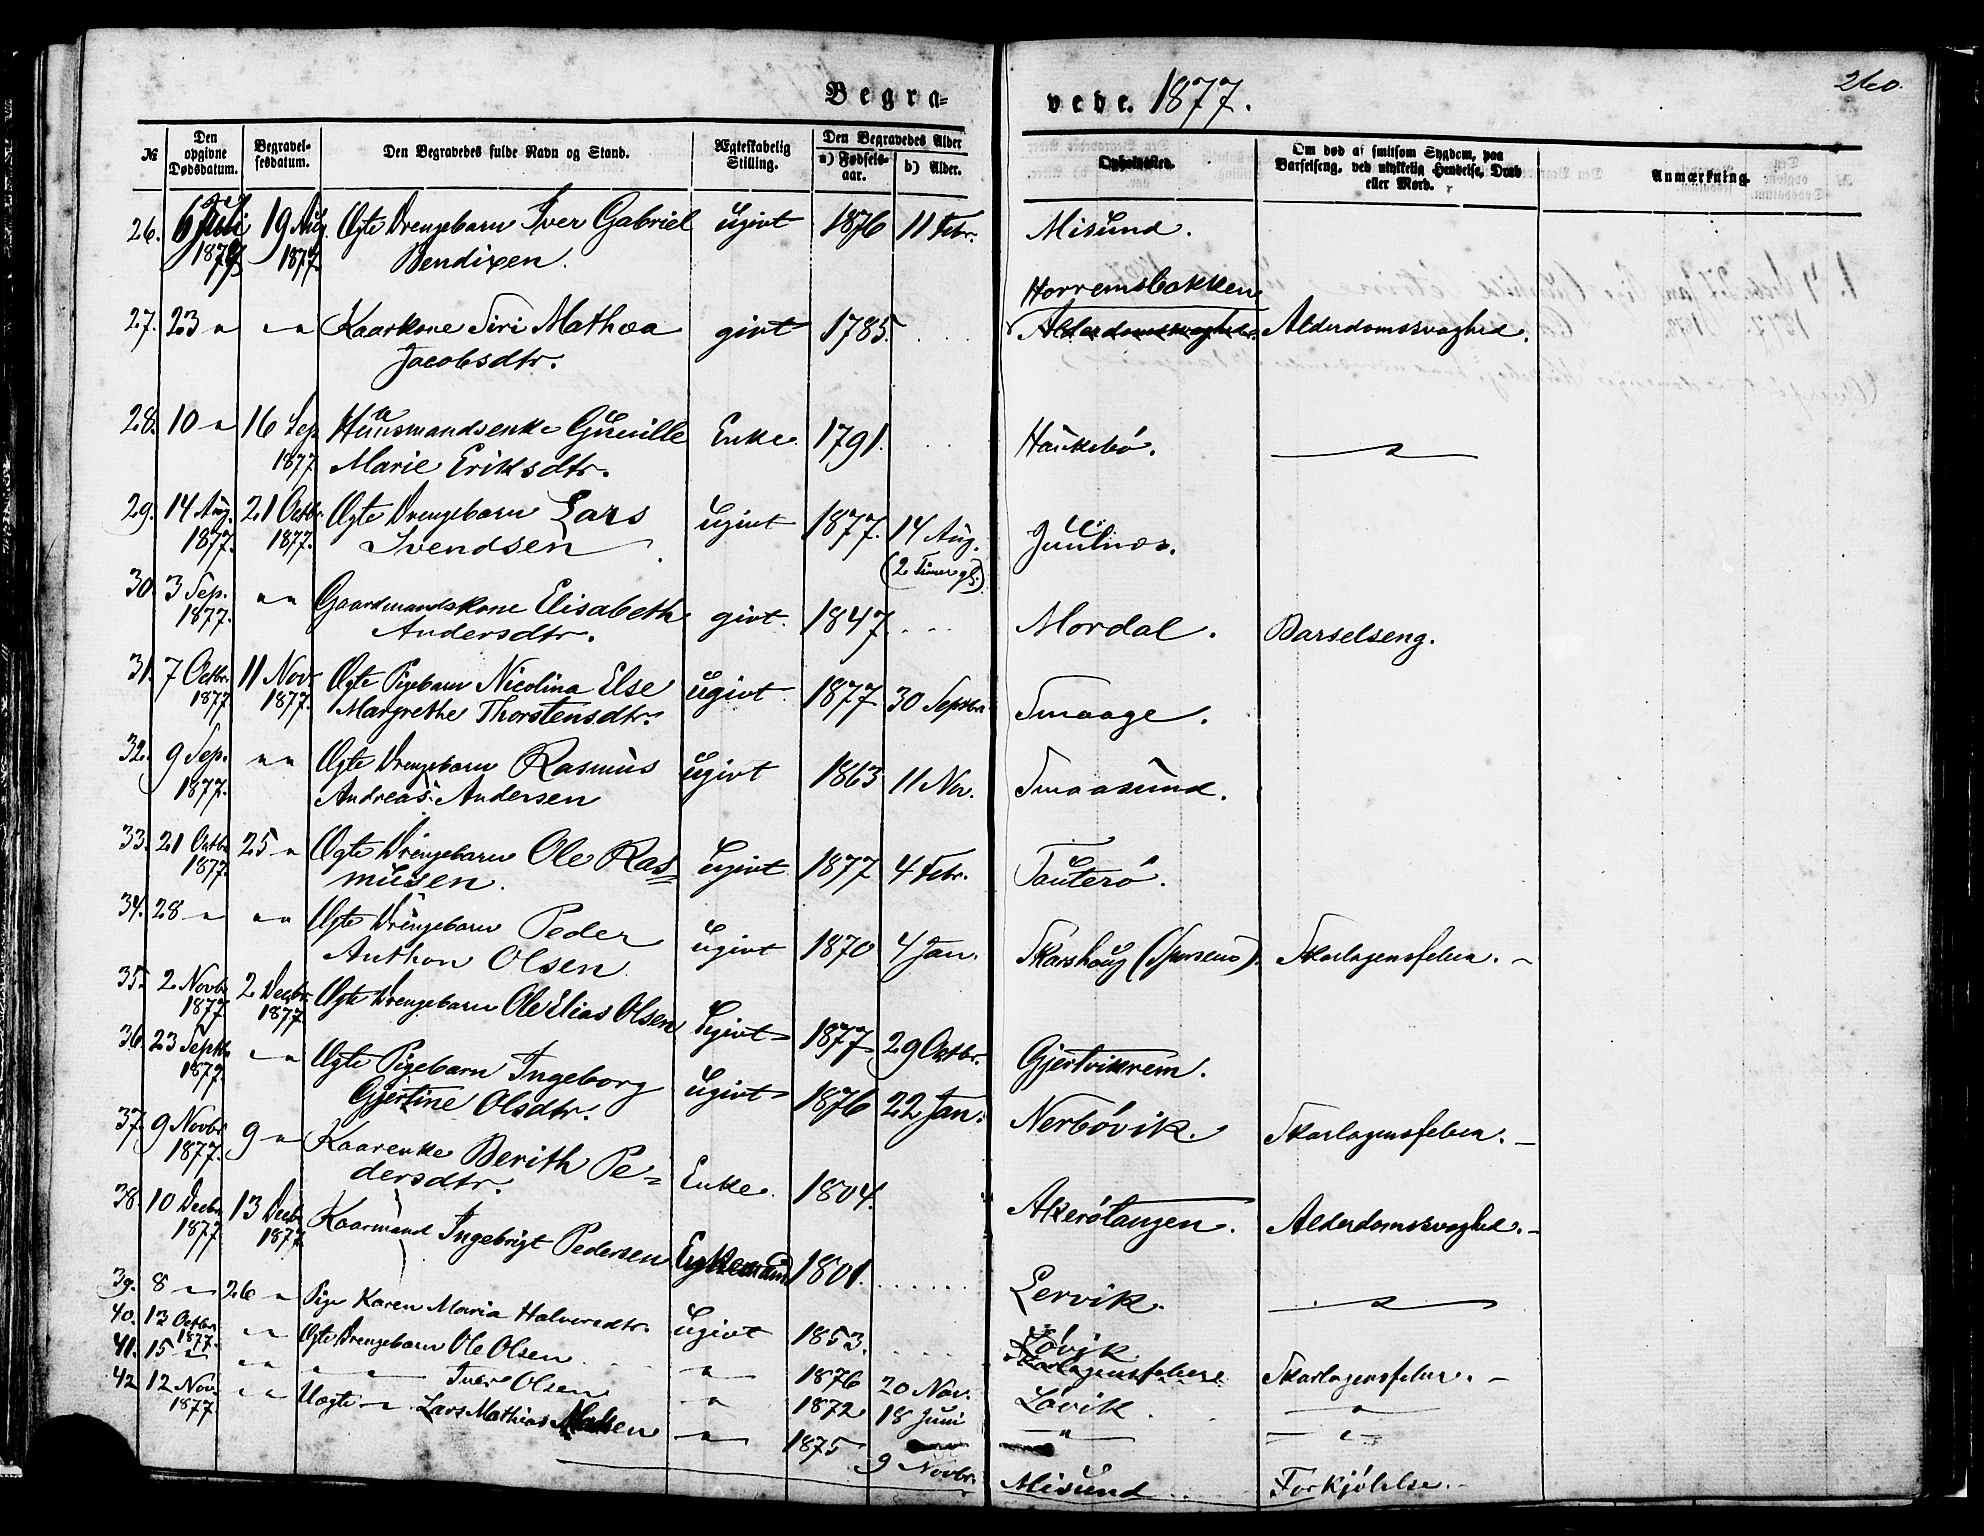 Begra=
vede. 1877.
260.
№
Den opgivne Dødsdatum.
Begravel-sesdatum.
Den Begravedes fulde Navn og Stand.
Ægteskabelig Stilling.
Den Begravedes Alder
a) Fødsels-aar.
b) Alder.
Opholdssted.
Om død af smitsom Sygdom, paa Barselseng, ved ulykkelig Hendelse, Drab eller Mord.
Anmærkning.
26. 6 Juli 19 Aug. Ægte Drengebarn Iver Gabriel ugivt 1876 11 Febr. Misund.
1877 1877. Bendixen.
Horremsbakken
27. 23 " " " Kaarkone Siri Mathea givt 1785. Alderdomssvaghed. Alderdomssvaghed.
Jacobsdtr.
28. 10 " 16 Sep. Huusmandsenke Gunille Enke 1791. Haukebö. — " —
1877 Marie Eriksdtr.
29. 14 Aug. 21 Octbr. Ægte Drengebarn Lars ugivt 1877. 14 Aug. Juulnæs.
1877. 1877. Svendsen (2 Timer gl.)
30. 3 Sep. " " Gaardmandskone Elisabeth givt 1847 Mordal. Barselseng.
1877. Andersdtr.
31. 7 Octbr. 11 Nov. Ægte Pigebarn Nicolina Else ugivt 1877 30 Septbr. Smaage.
1877 1877. Margrethe Thorstensdtr.
32. 9 Sep. " " Ægte Drengebarn Rasmus ugivt 1863 11 Nov. Smaasund.
1877. Andreas Andersen
33. 21 Octbr. 25 " Ægte Drengebarn Ole Ras= Ugivt 1877 4 Febr. Tauterö.
1877. musen.
34. 28 " " " Ægte Drengebarn Peder ugivt 1870 4 Jan. Skarshoug Skarlagensfeber. -
Anthon Olsen
35. 2 Novbr. 2 Decbr. Ægte Drengebarn Ole Elias Olsen Ugivt 1877 29 Octbr. Gjertvikrem.
1877 1877
36. 23 Septbr. " " Ægte Pigebarn Ingeborg ugivt 1876 22 Jan. Nerbövik. Skarlagensfeber. -
1877. Gjertine Olsdtr.
37. 9 Novbr. 9 " Kaarenke Berith Pe= Enke. 1804. Akerötangen. Alderdomssvaghed. -
1877. dersdtr.
38. 10 Decbr. 13 Decbr. Kaarmand Ingebrigt Pedersen Enkemand 1801. Lervik. — " —
1877 1877
39. 8 " 26 " Pige Karen Maria Halvorsdtr. ugivt 1853. Lövik
Skarlagensfeber
40. 13 Octbr. " " Ægte Drengebarn Ole Olsen " 1876 20 Nov. Lövik. Skarlagensfeber. -
1877.
41. 15 " " " " — Iver Olsen " 1872 18 Juni — " — — " —
42 12 Nov. " " Uægte — " Lars Mathias " 1875 9 Novbr. Misund Forkjölelse. -
1877.